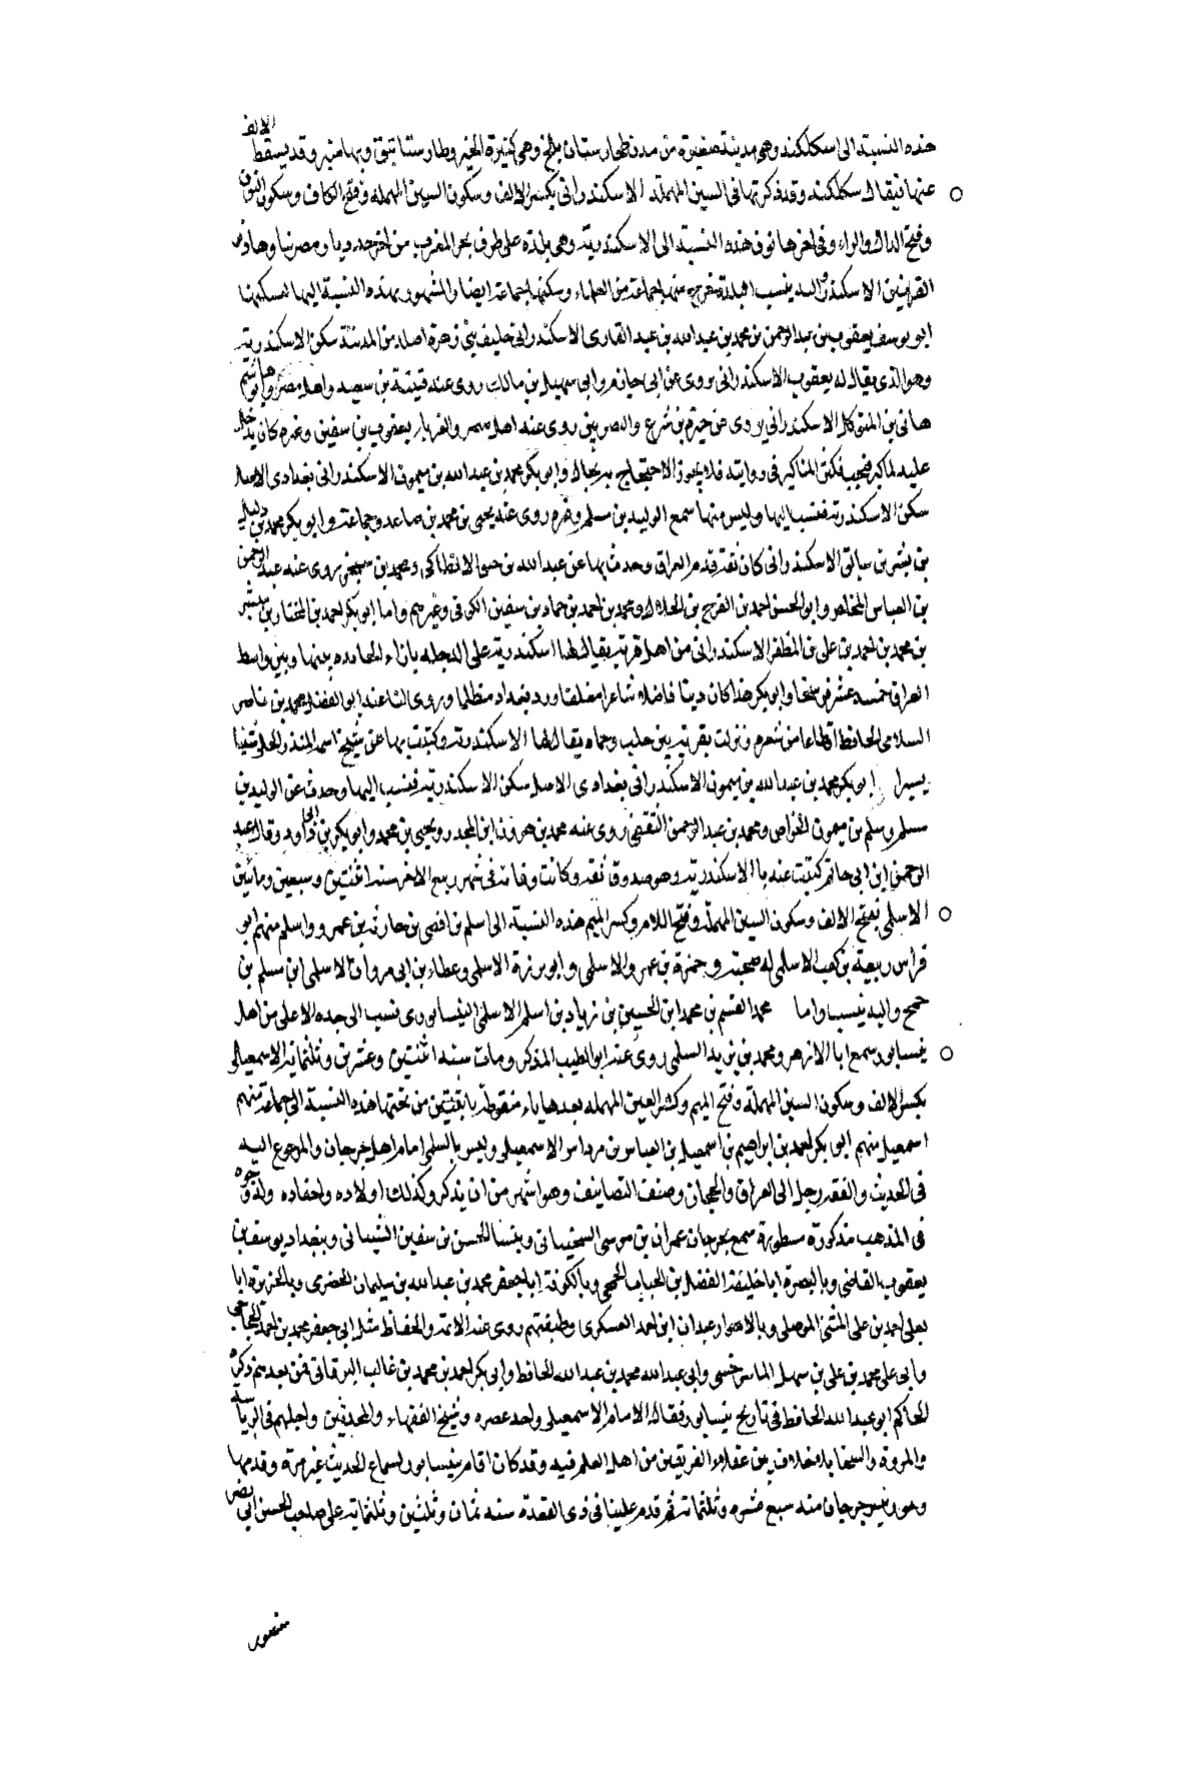 هذه النسبة الى اسكلكند وهى مدينة صغيرة من مدن طخارستان بلخ وهى كثيرة الخير وقد يسقط الالف
عنها فيقال سكلكند وقد ذكرتها فى السين المهملة الاسكندرانى بكسر الالف وسكون السين المهمله وفتح الكاف وسكون النون
وفتح الدال والراء وفى اخرها نون هذه النسبة الى الاسكندرية وهى بلدة على طرف بحر المغرب من اخر حد ديار مصر بناها ذو
القرنين الاسكندر واليه ينسب البلدة خرج منها جماعة من العلماء وسكنها جماعة ايضا والمشهور بهذه النسبة اليها لسكنها
ابو يوسف يعقوب بن عبد الرحمن بن محمد بن عبد الله بن عبد القارى الاسكندرانى حليف بنى زهرة اصله من المدينة سكن الاسكندرية
وهو الذى يقال له يعقوب الاسكندرانى يروى عن ابى حازم وابى سهيل بن مالك روى عنه قتيبة بن سعيد واهل مصر وابو هاشم
هانى بن المتوكل الاسكندرانى يروى عن حيوة بن شريح والبصريين روى عنه اهل مصر والغرباء يعقوب بن سفين وغيره كان يدخل
عليه لما كبر فيجيب فكثر المناكير فى روايته فلا يجوز الاحتجاج به بحال وابو بكر محمد بن عبد الله بن ميمون الاسكندرانى بغدادى الاصل
سكن الاسكندرية فنسب اليها وليس منها سمع الوليد بن مسلم وغيره روى عنه يحيى بن محمد بن صاعد وجماعة وابو بكر محمد بن دليل
بن بشر بن سابق الاسكندرانى كان ثقة قدم العراق وحدث بها عن عبد الله بن خبيق الانطاكى ومحمد بن سنجر روى عنه عبد الرحمن
بن العباس المخلص وابو الحسن احمد بن الفرج بن الحلال ومحمد بن احمد بن حماد بن سفين الكوفى وغيرهم واما ابو بكر احمد بن المختار بن مبشر
بن محمد بن احمد بن على بن المظفر الاسكندرانى من اهل قرية يقال لها اسكندرية على الدجله بازاء الجامده بينها وبين واسط
العراق خمسة عشر فرسخا وابو بكر هذا كان دينا فاضلا شاعرا مفلقا ورد بغداد متظلما وروى لنا عنه ابو الفضل محمد بن ناصر
السلامى الحافظ اقطاعا من شعره ونزلت بقرية بين حلب وحماه يقال لها الاسكندرية وكتبت بها عن شيخ اسمه المنذر الحلى شيئا
يسيرا ابو بكر محمد بن عبد الله بن ميمون الاسكندرانى بغدادى الاصل سكن الاسكندرية فنسب اليها وحدث عن الوليد بن
مسلم وسلم بن ميمون الخواص ومحمد بن عبد الرحمن الثقفى روى عنه محمد بن هرون ابن المجدر ويحيى بن محمد وابو بكر بن ابى داود وقال عبد
الرحمن ابن ابى حاتم كتبت عنه بالاسكندرية وهو صدوق ثقة وكانت وفاته فى شهر ربيع الاخر سنة اثنتين وسبعين ومائتين
الاسلمى بفتح الالف وسكون السين المهملة وفتح اللام وكسر الميم هذه النسبة الى اسلم بن افصى بن حارثة بن عمرو واسلم منهم ابو
فراس ربيعة بن كعب الاسلمى له صحبة وحمزة بن عمرو الاسلمى وابو برزة الاسلمى وعطاء بن ابى مروان الاسلمى ابن مسلم بن
جمح واليه ينسب واما محمد القسم بن محمد ابن الحسين بن زياد بن اسلم الاسلمى النيسابورى نسب الى جده الاعلى من اهل
نيسابور سمع ابا الازهر ومحمد بن يزيد السلمى روى عنه ابو الطيب المذكر ومات سنة اثنتين وعشرين وثلثمائة الاسمعيلى
بكسر الالف وسكون السين المهملة وفتح الميم وكسر العين المهمله بعدها ياء منقوطة باثنتين من تحتها هذه النسبة الى جماعة منهم
اسمعيل منهم ابو بكر احمد بن ابراهيم بن اسمعيل بن العباس بن مرداس الاسمعيلى وليس بالسلمى امام اهل جرجان والمرجوع اليه
فى الحديث والفقه رحل الى العراق والحجاز وصنف التصانيف وهو اشهر من ان يذكر وكذلك اولاده واحفاده وله وجوه
فى المذهب مذكورة مسطورة سمع بجرجان عمران بن موسى السختيانى وبنسا الحسن بن سفين الشيبانى وببغداد يوسف بن
يعقوب القاضى وبالبصرة ابا خليفة الفضل بن الحباب الجمحى وبالكوفة ابا جعفر محمد بن عبد الله بن سليمان الحضرمى وبالجزيرة ابا
يعلى احمد بن على المثنى الموصلى وبالاهواز عبدان ابن احمد العسكرى وطبقتهم روى عنه الائمة والحفاظ مثل ابى جعفر محمد بن احمد الحجاجى
وابى على محمد بن على بن سهل الماسرخسى وابى عبد الله محمد بن عبد الله الحافظ وابى بكر احمد بن محمد بن غالب البرقانى فمن بعدهم ذكره
الحاكم ابو عبد الله الحافظ فى تاريخ نيسابور فقال الامام الاسمعيلى واحد عصره وشيخ الفقهاء والمحدثين واجلهم فى الرياسة
والمروة والسخا بلا خلاف بين عقلاء الفريقين من اهل العلم فيه وقد كان اقام بنيسابور لسماع الحديث غير مرة وقدمها
وهو رئيس جرجان سنة سبع عشره وثلثمائة ثم قدم علينا فى ذى القعدة سنة ثمان وثلثين وثلثمائة على صاحب الحسن ابى نصر
منصور